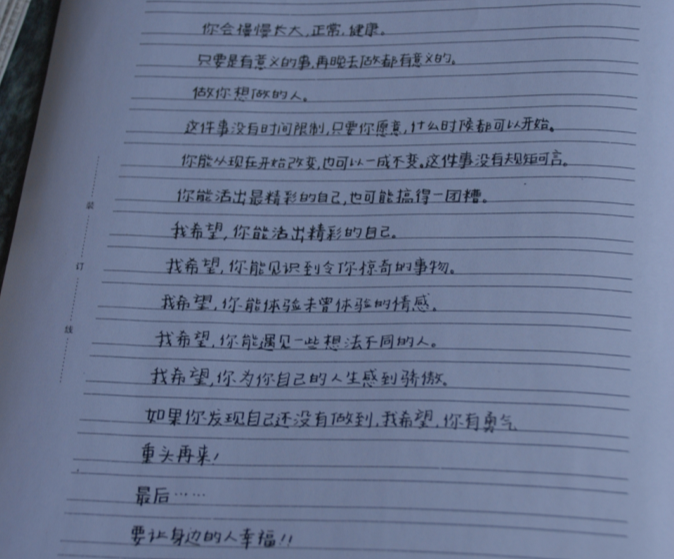 你会慢慢长大,正常,健康。
只要是有意义的事,再晚去做都有意义的。
做你想做的人。
这件事没有时间限制,只要你愿意,什么时候都可以开始。
你能从现在开始改变,也可以一成不变。这件事没有规矩可言。
你能活出最精彩的自己,也可能搞得一团糟。
我希望,你能活出精彩的自己。
我希望,你能见识到令你惊奇的事物。
我希望,你能体验未曾体验的情感。
我希望,你能遇见一些想法不同的人。
我希望,你为你自己的人生感到骄傲。
如果你发现自己还没有做到,我希望,你有勇气
重头再来!
最后……
要让身边的人幸福!!
装
订
线